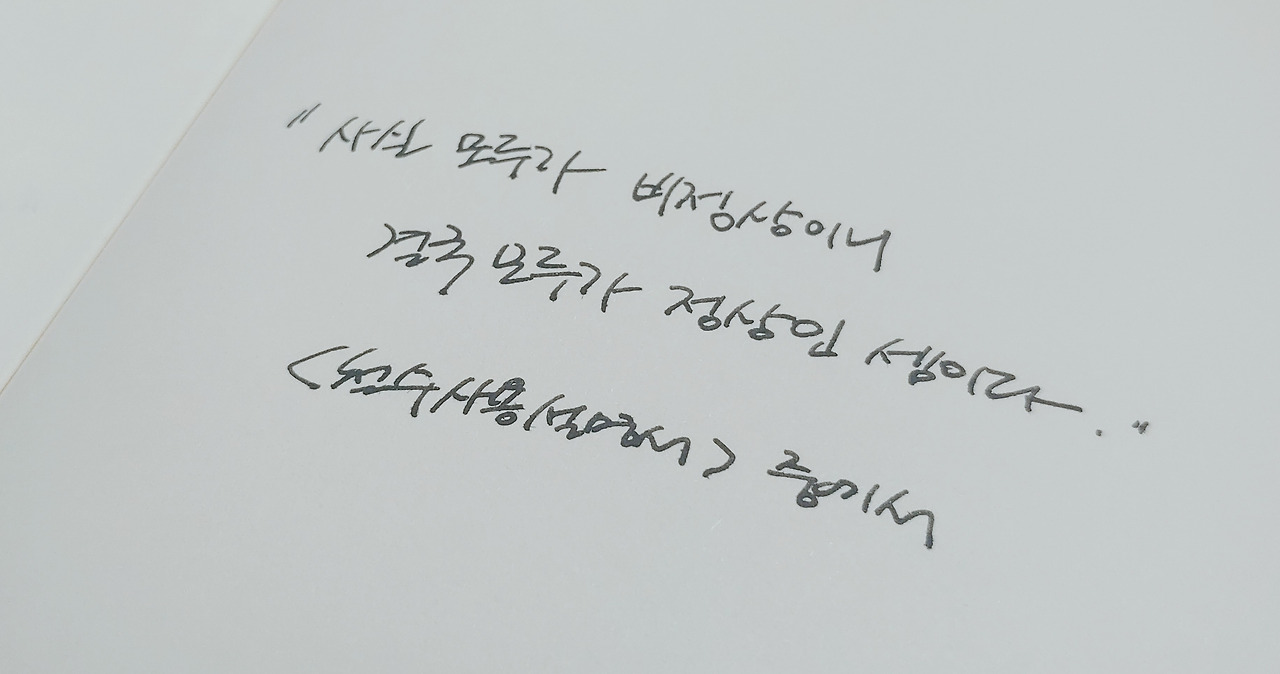 "사실 모두가 비정상이니
결국 모두가 정상인 셈이다."
<천수사용설명서> 중에서